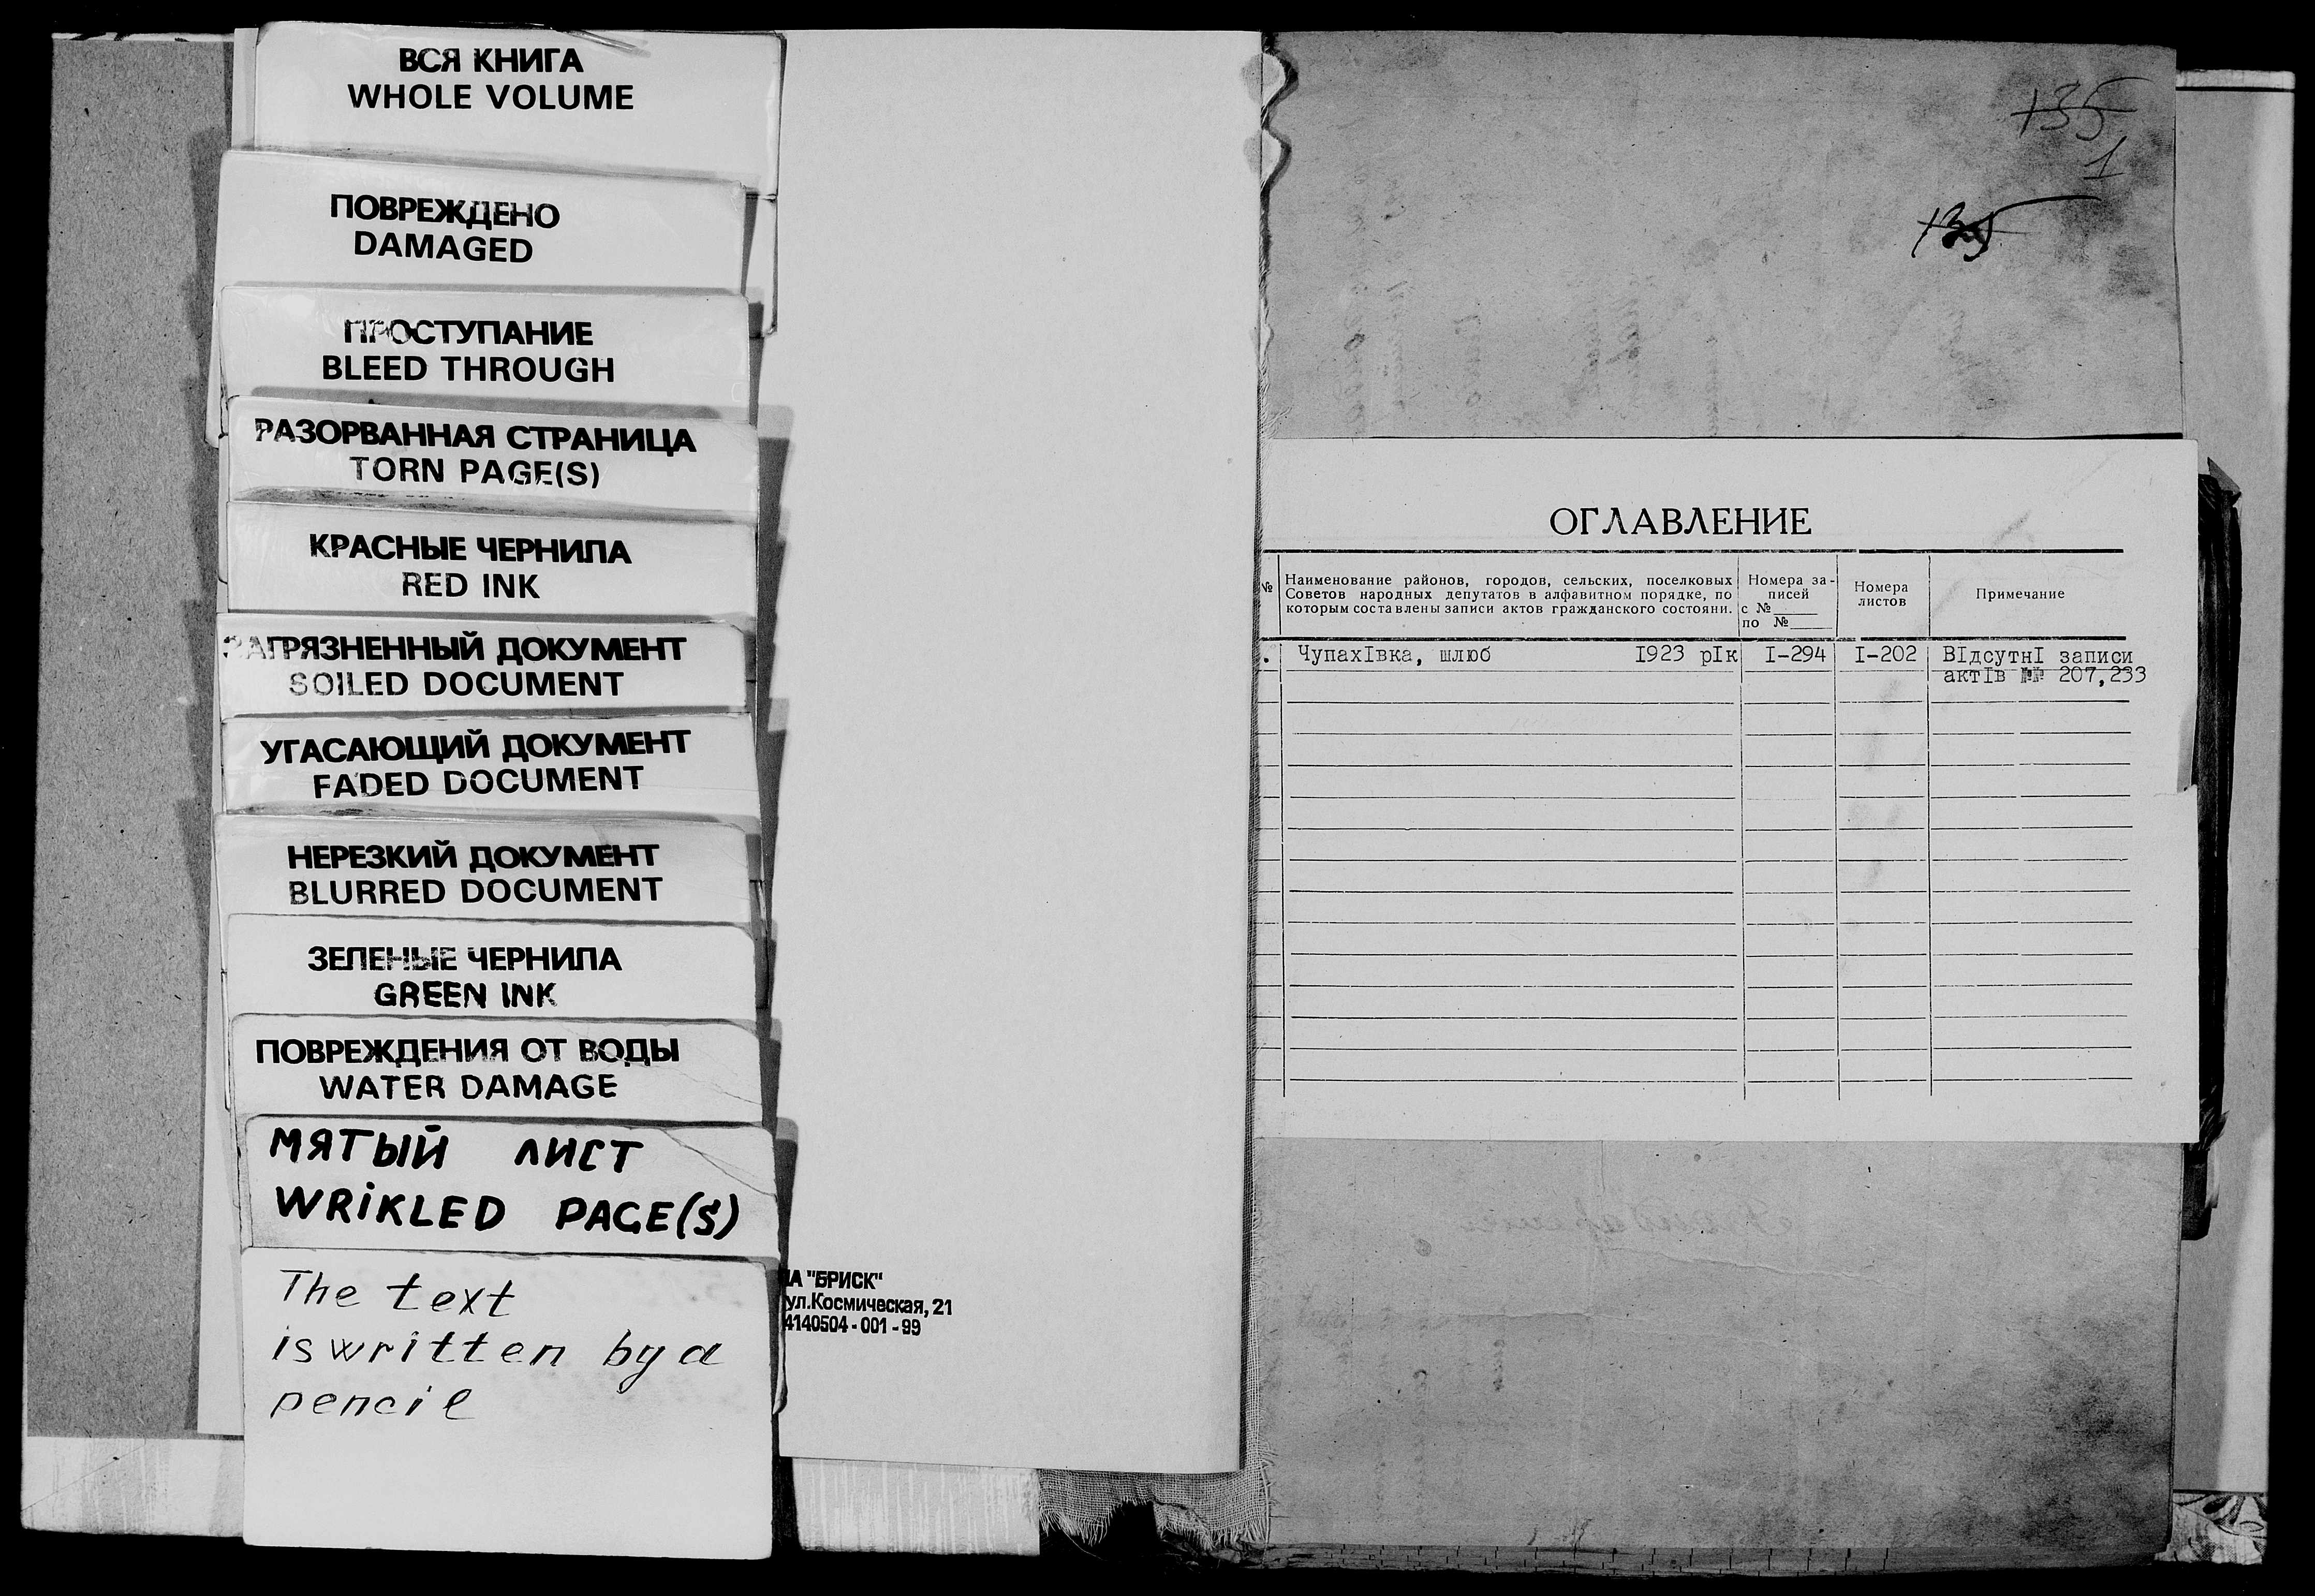 ВСЯ КНИГА
WHOLE VOLUME
ПОВРЕЖДЕНО
DAMAGED
ПРОСТУПАНИЕ
BLEED THROUGH
РАЗОРВАННАЯ СТРАНИЦА
TORN PAGE(S)
КРАСНЫЕ ЧЕРНИЛА
RED INK
ЗАГРЯЗНЕННЫЙ ДОКУМЕНТ
SOILED DOCUMENT
УГАСАЮЩИЙ ДОКУМЕНТ
FADED DOCUMENT
НЕРЕЗКИЙ ДОКУМЕНТ
BLURRED DOCUMENT
ЗЕЛЕНЫЕ ЧЕРНИЛА
GREEN INK
ПОВРЕЖДЕНИЯ ОТ ВОДЫ
WATER DAMAGE
МЯТЫЙ ЛИСТ
WRIKLED PAGE(S)
The text
is written by a
pencil
"БРИСК"
ул.Космическая, 21
4140504 - 001 - 99
135
1
135
ОГЛАВЛЕНИЕ
№ Наименование районов, городов, сельских, поселковых Советов народных депутатов в алфавитном порядке, по которым составлены записи актов гражданского состояни. Номера за-писей с №____ по №____ Номера листов Примечание
. ЧупахIвка, шлюб I923 рIк I-294 I-202 ВIдсутнI записи
актIв №№ 207,233